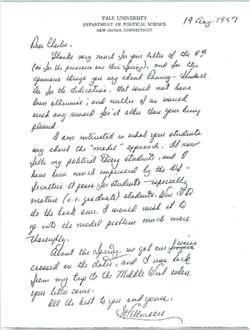 YALE UNIVERSITY
DEPARTMENT OF POLITICAL SCIENCE
NEW HAVEN, CONNECTICUT
19 Aug. 1957
Dear Charles,
Thanks very much for your letter of the 9th
(as for the previous one this Spring), and for the
generous things you say about Ranney-Kendall.
As for the dedication: that could not have
been otherwise; and neither of us would
wish any reward for it other than your being
pleased.
I am interested in what your students
say about the "model" approach. It now
with my political theory students, and I
have been much impressed by the
it poses for students—especially
mature (i.e. graduate) students. If I
do the book over, I would wish it to
go into the model problem much more
thoroughly.
About the, we got our
crossed on the dates, and I was back
from my trip to the Middle West when
your letter came.
All the best to you and yours,